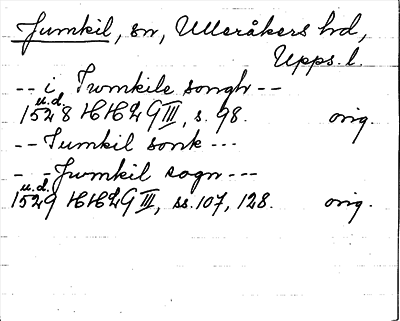 Jumkil, sn, Ulleråkers hd,
Upps. l.
-- i Iwmkile songh --
u.d.
1528 HH 29 III, s. 98. orig.
-- Iumkil sonk ---
- - Jwmkil sogn ---
u.d.
1529 HH 29 III, ss. 107, 128. orig.